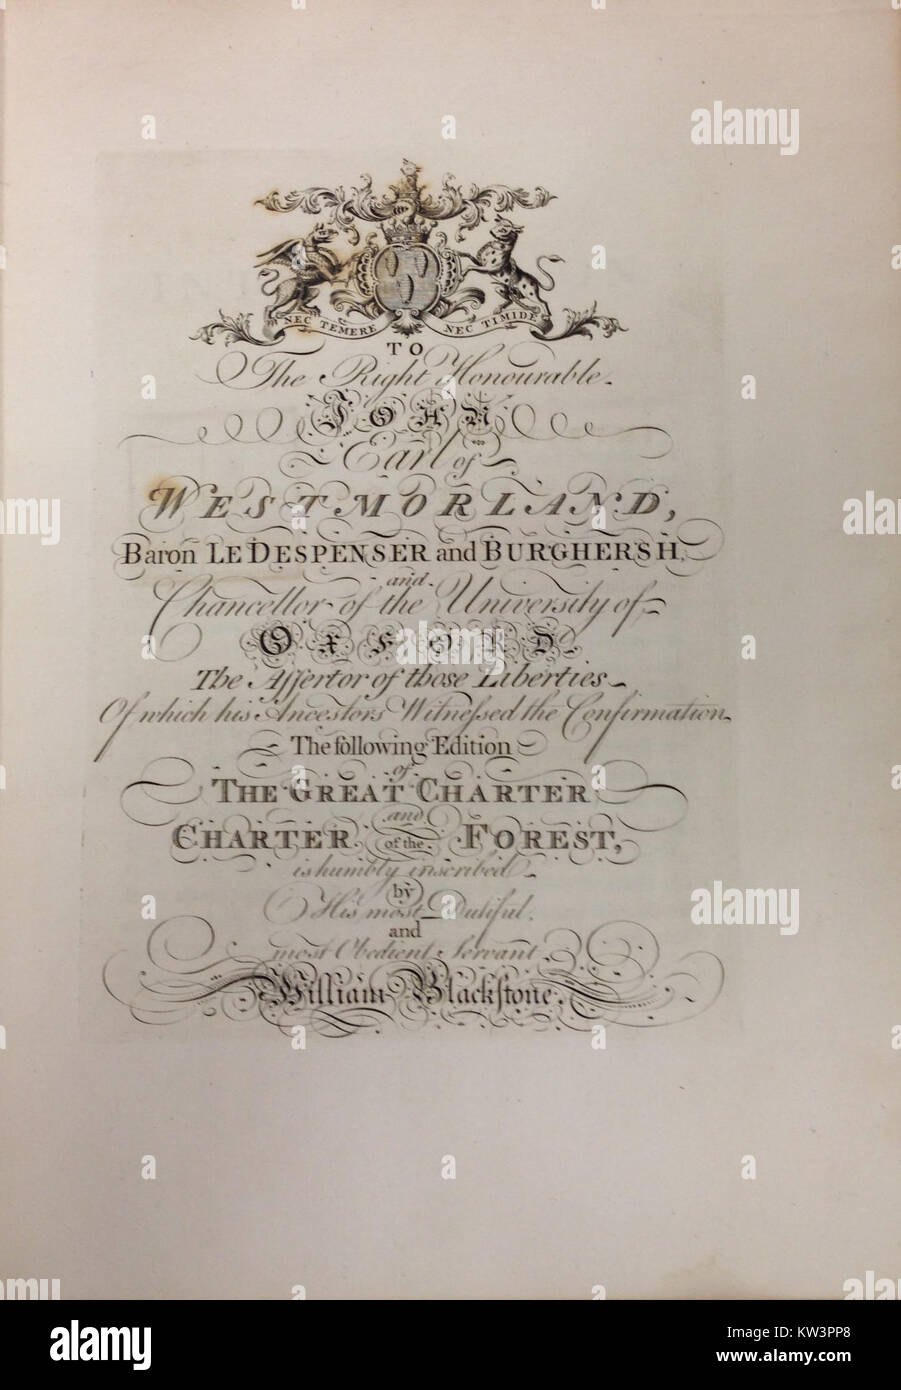 NEC TEMERE NEC TIMIDE
TO
The Right Honourable
JOHN
Earl of
WESTMORLAND,
Baron LE DESPENSER and BURGHERSH,
and
Chancellor of the University of
OXFORD.
The Aſſertor of those Liberties
Of which his Ancestors Witneſsed the Confirmation
The following Edition
of
THE GREAT CHARTER
and
CHARTER of the FOREST,
is humbly inscribed
by
His most Dutiful.
and
most Obedient Servant
William Blackſtone.
alamy stock photo
a
alamy
KW3PP8
www.alamy.com